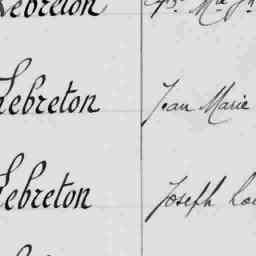 Lebreton
Lebreton Jean Marie
Lebreton Joseph